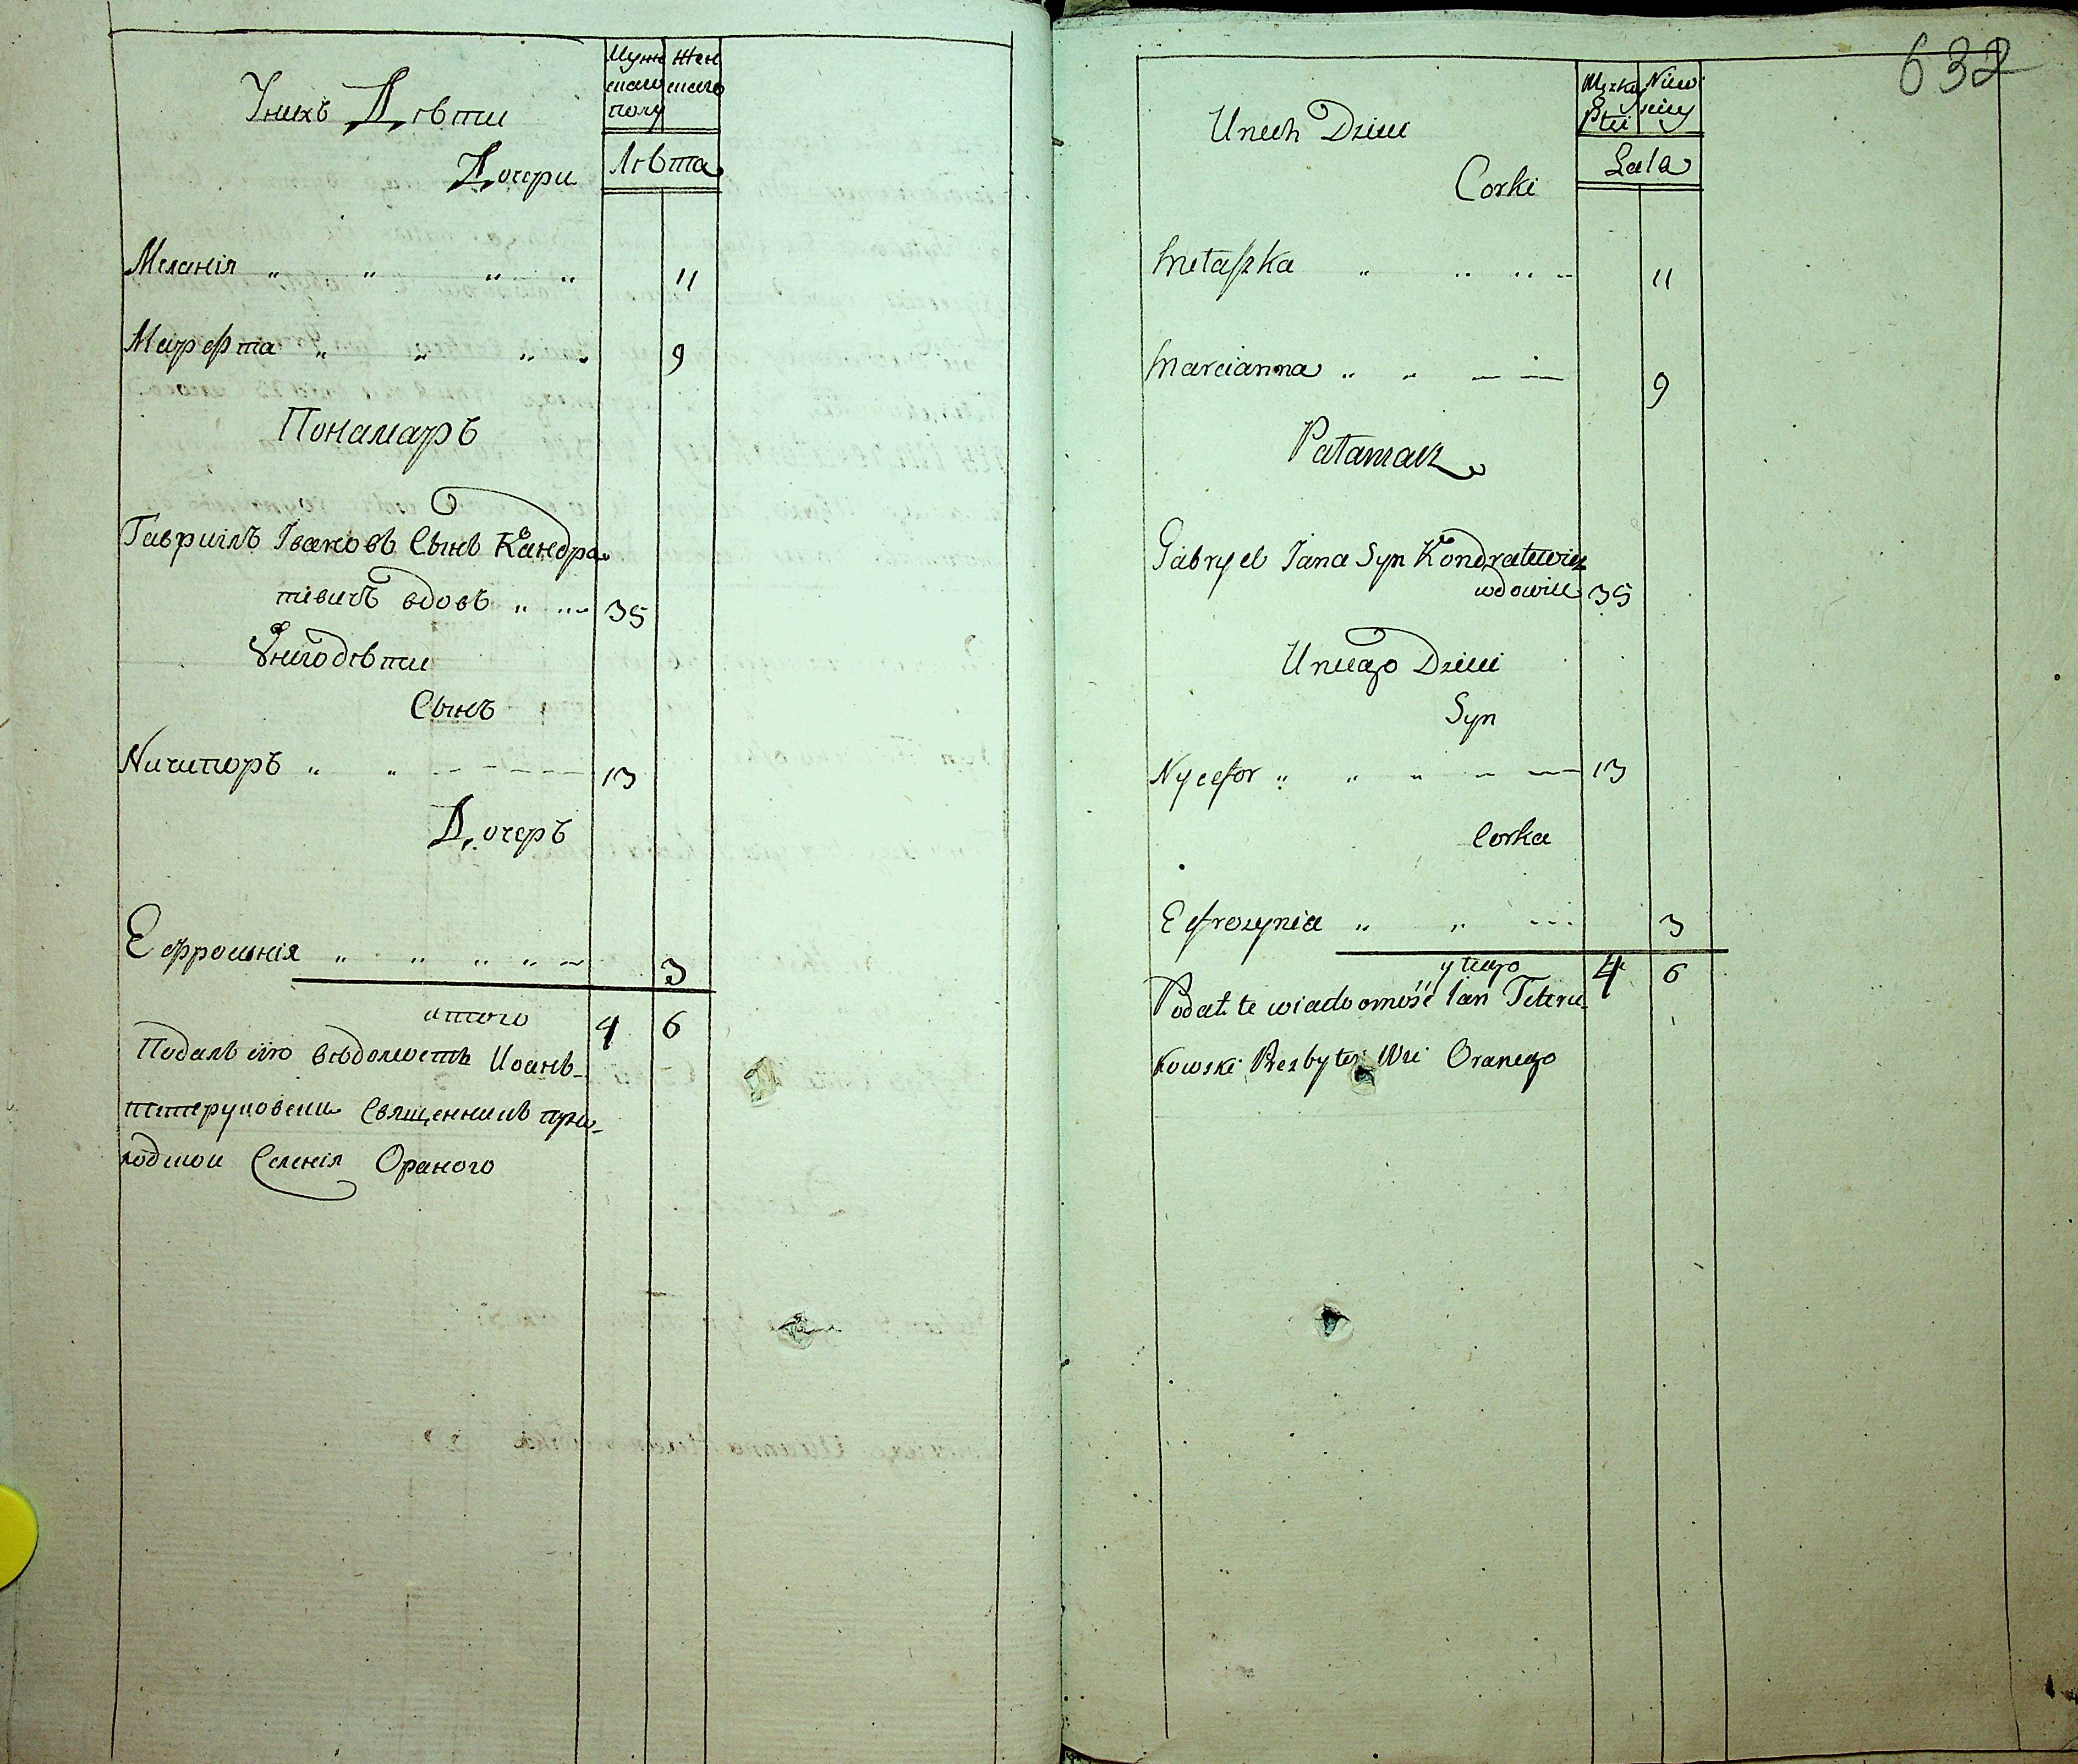 Унихъ Дѣти
Муже
скаго
полу
Жен
скаго
Дочери
Лѣта
Меланія 11
Марфта 9
Понамаръ
Гавриилъ Івановъ Сынъ Кандра
тивичъ вдовъ 35
Унигодѣти
Сынъ
Ничипоръ 13
Дочеръ
Ефросинія 3
итого 4 6
Подалъ сїю вѣдомость Иоанъ
тетеруковски Священникъ при
ходскои Селенія Ораного
632
Unich Dzieci
Męzka
Płci
Niew
Corki
Lata
Metaszka 11
Marcianna 9
Patamarz
Gabryel Jana Syn Kondratewicz
wdowiec 35
Uniego Dzieci
Syn
Nycefor 13
Corka
Efrozynia 3
ytego 4 6
Podał te wiadoomość Ian Teteru
kowski Prezbyter Wsi Oranego